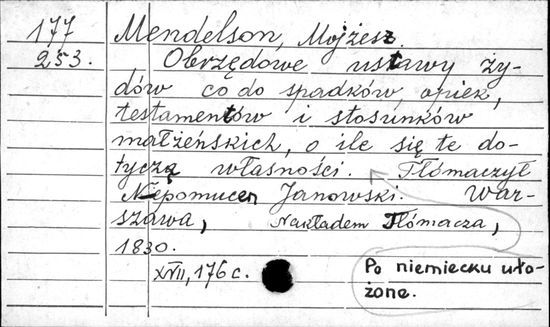 177
253.
Mendelson, Mojżesz.
Obrzędowe ustawy ży-
dów co do spadków, opiek,
testamentów i stosunków
małżeńskich, o ile się te do-
tyczą własności. Tłómaczył
Niepomucen Janowski. War-
szawa, Nakładem Tłómacza,
1830.
XVII, 176 c.
Po niemiecku uło-
żone.